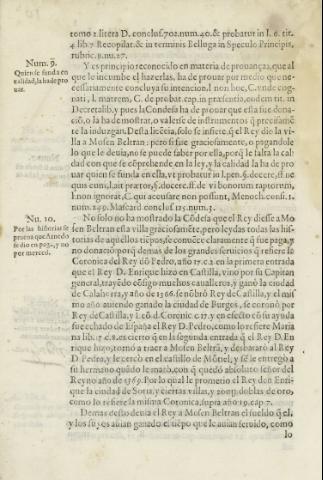 tomo 2. litera D. conclus. 702. num. 40. & probatur in l. 6. tit.
4. lib. 7. Recopilat. & in terminis Belluga in Speculo Principis,
rubric. 8. nu. 27.
Num. 9.
Quien se funda en
calidad, la ha de pro
uar.
Y es principio reconocido en materia de prouanças, que al
que le incumbe el hazerlas, ha de prouar por medio que ne-
cessariamente concluya su intencion, l. non hoc, C. vnde cog-
nati, l. matrem, C. de probat. cap. in præsentia, eodem tit. in
Decretalib. y pues la Condesa ha de prouar que esta fue dona-
ciõ, o la ha de mostrar, o valerse de instrumentos q̃ precisamẽ
te la induzgan. Desta licẽcia, solo se infiere, q̃ el Rey dio la vi-
lla a Mosen Beltran: pero si fue graciosamente, o pagandole
lo que le deuia, no se puede saber por ella, porq̃ le falta la cali-
dad con que se cõprehende en la ley, y la calidad la ha de pro
uar quien se funda en ella, vt probatur in l. pen. §. docere, ff. ne
quis eum, l. ait prætor, §. docere, ff. de vi bonorum raptorum,
l. non ignorat, C. qui accusare non possunt, Menoch. cons. 1.
num. 249. Mascard. conclus. 15. num. 3.
Nu. 10.
Por las historias se
prueua que Almodo
se dio en paga, y no
por merced.
No solo no ha mostrado la Cõdesa que el Rey diesse a Mo
sen Beltran esta villa graciosamẽte, pero leydas todas las his-
torias de aquellos tiẽpos, se conuẽce claramente q̃ fue paga, y
no donaciõ: porq̃ demas de los grandes seruicios q̃ refiere la
Coronica del Rey dõ Pedro, año 17. c. 2. en la primera entrada
que el Rey D. Enrique hizo en Castilla, vino por su Capitan
general, trayẽdo cõsigo muchos caualleros, y ganò la ciudad
de Calahorra, y año de 1366. se nõbrò Rey de Castilla, y el mis
mo año auiendo ganado la ciudad de Burgos, se coronò por
Rey de Castilla, y
en efecto cõ su ayuda
fue echado de España el Rey D. Pedro, como lo refiere Maria
na lib. 17. c. 8. es cierto q̃ en la segunda entrada q̃ el Rey D. En
rique hizo, tornò a traer a Mosen Beltrã, y desbaratò al Rey
D. Pedro, y le cercò en el castillo de Mõtiel, y sẽ le entregò a
su hermano, quãdo le matò, con q̃ quedò absoluto señor del
Reyno año de 1369. Por lo qual le prometio el Rey don Enri-
que la ciudad de Soria, y ciertas villas, y doblas de oro,
como lo refiere la misma Coronica, supra año 19. cap. 7.
Demas desto deuia el Rey a Mosen Beltran el sueldo q̃ el,
y los suyos auian ganado el tiẽpo que le auian seruido, como
lo